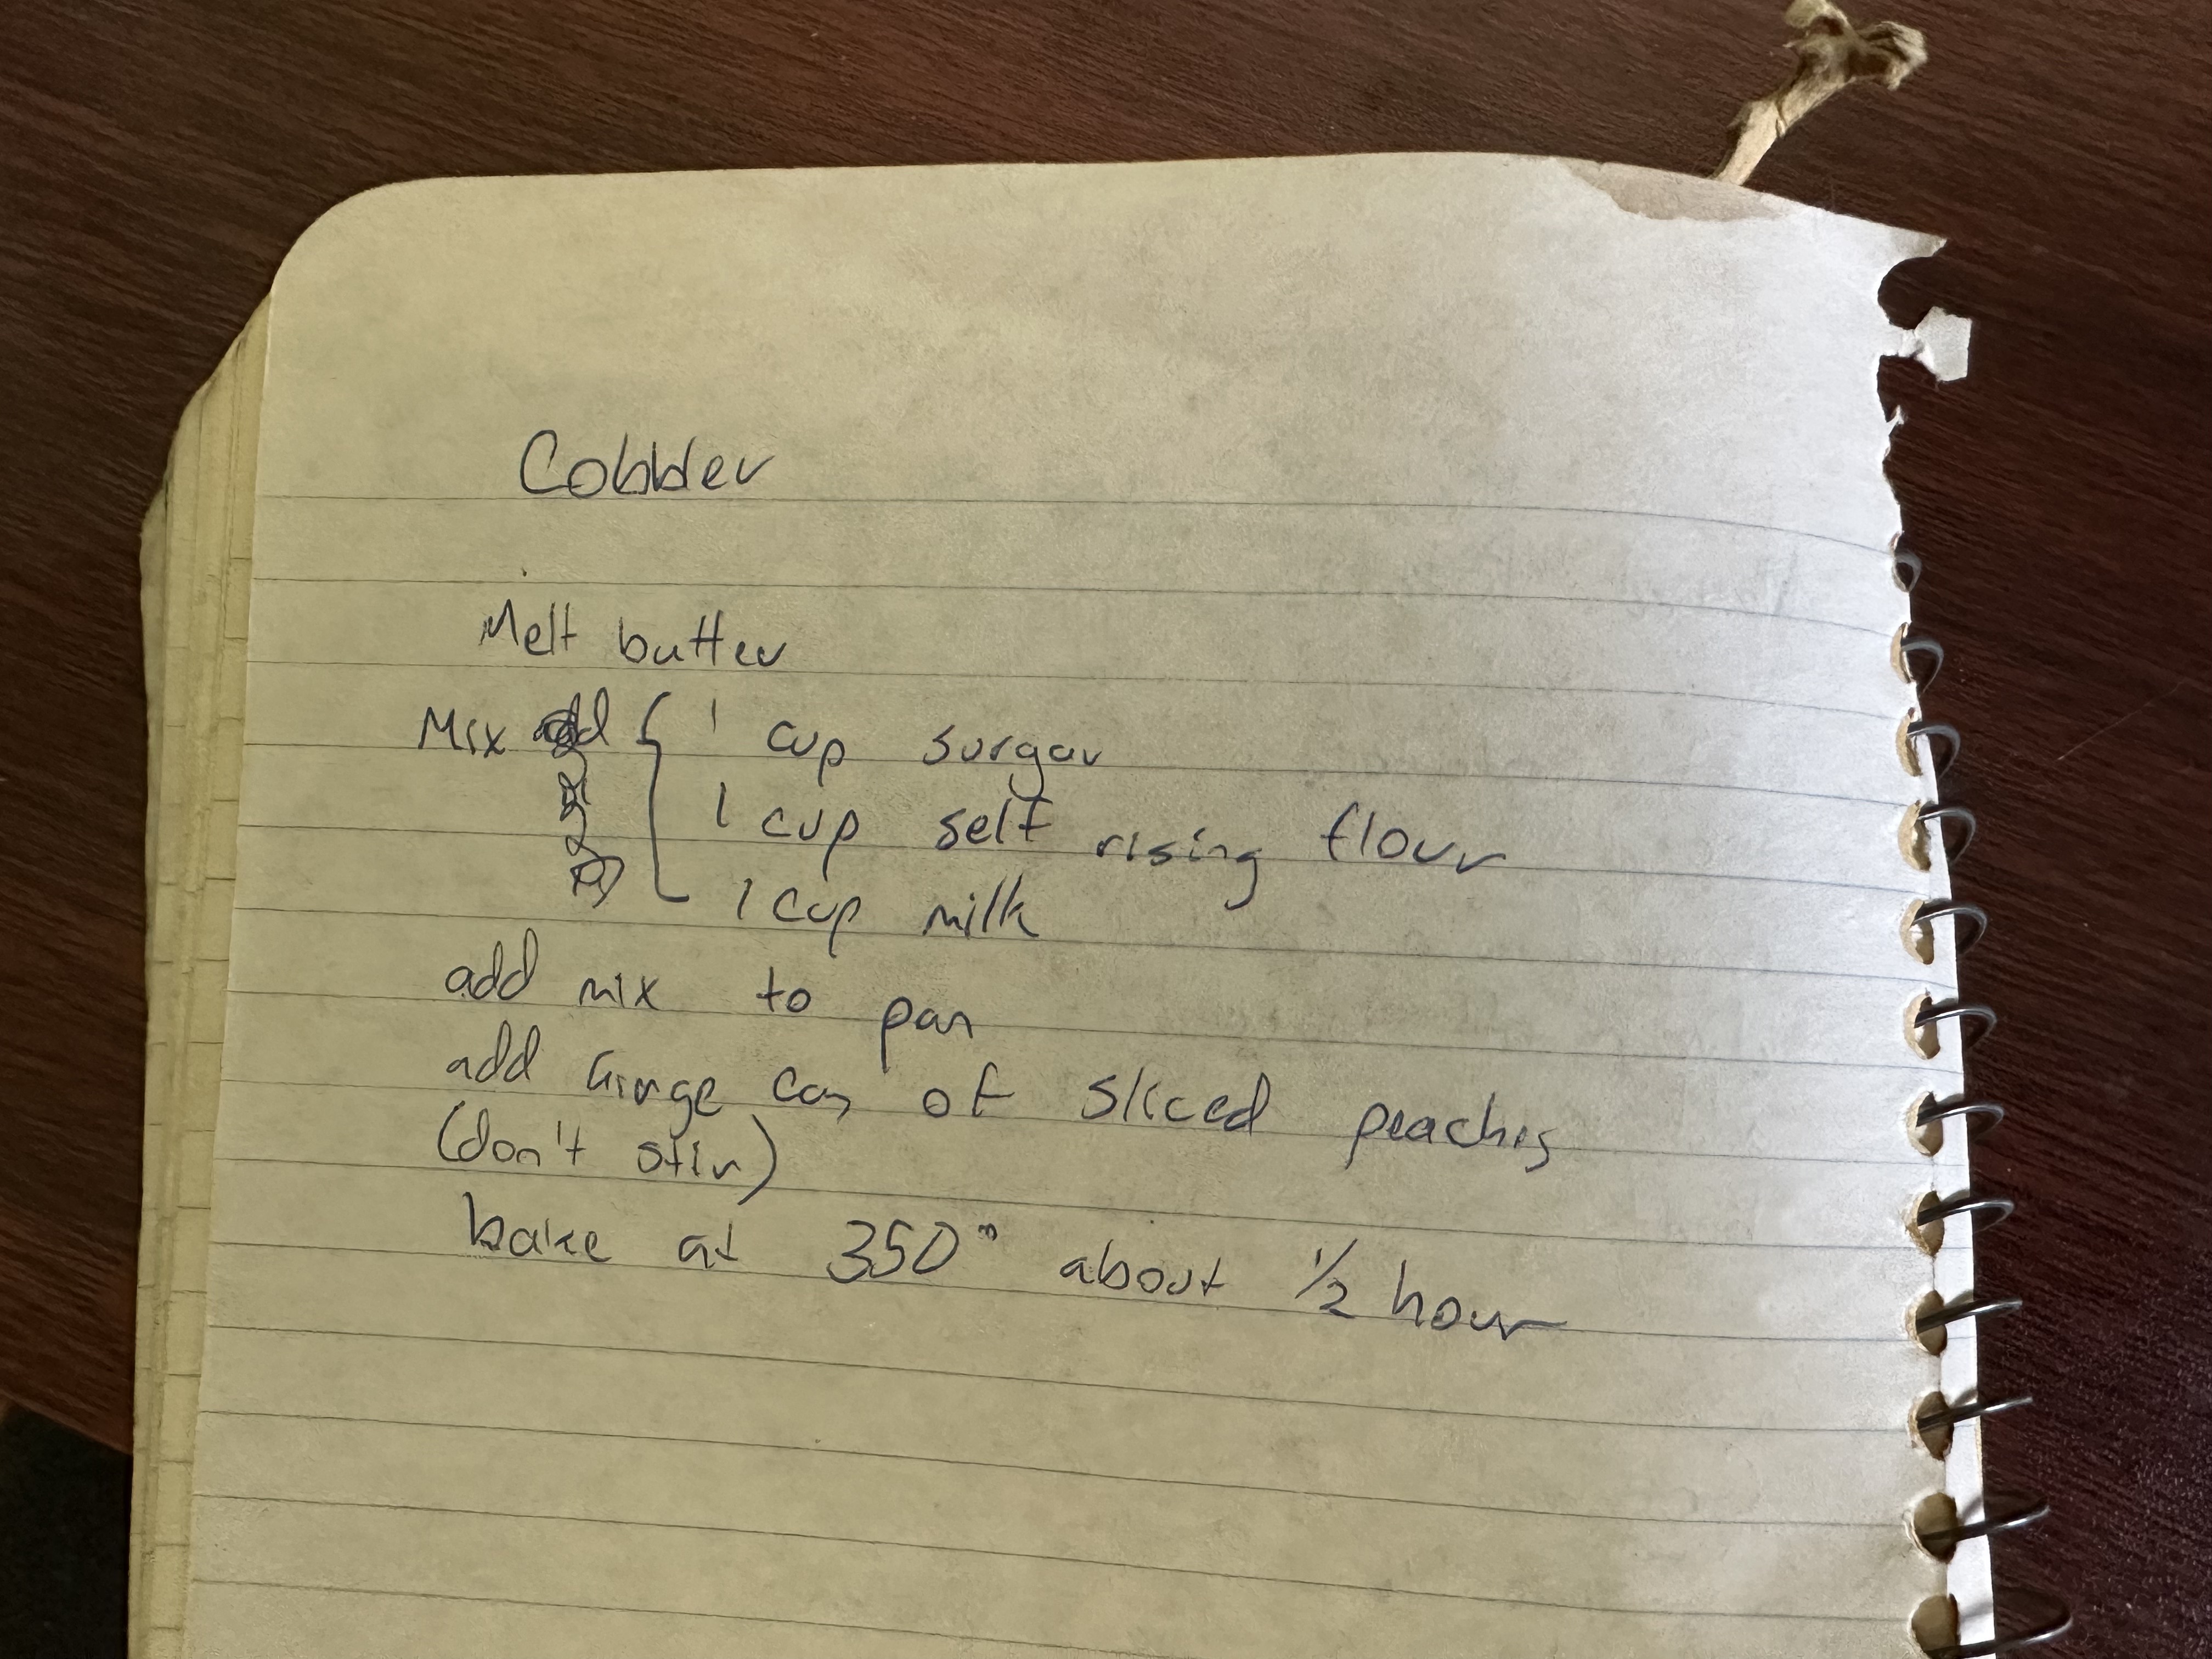 Cobbler
Melt butter
Mix { 1 cup surgar
1 cup self rising flour
1 cup milk
add mix to pan
add large can of sliced peaches
(don't stir)
bake at 350° about 1/2 hour